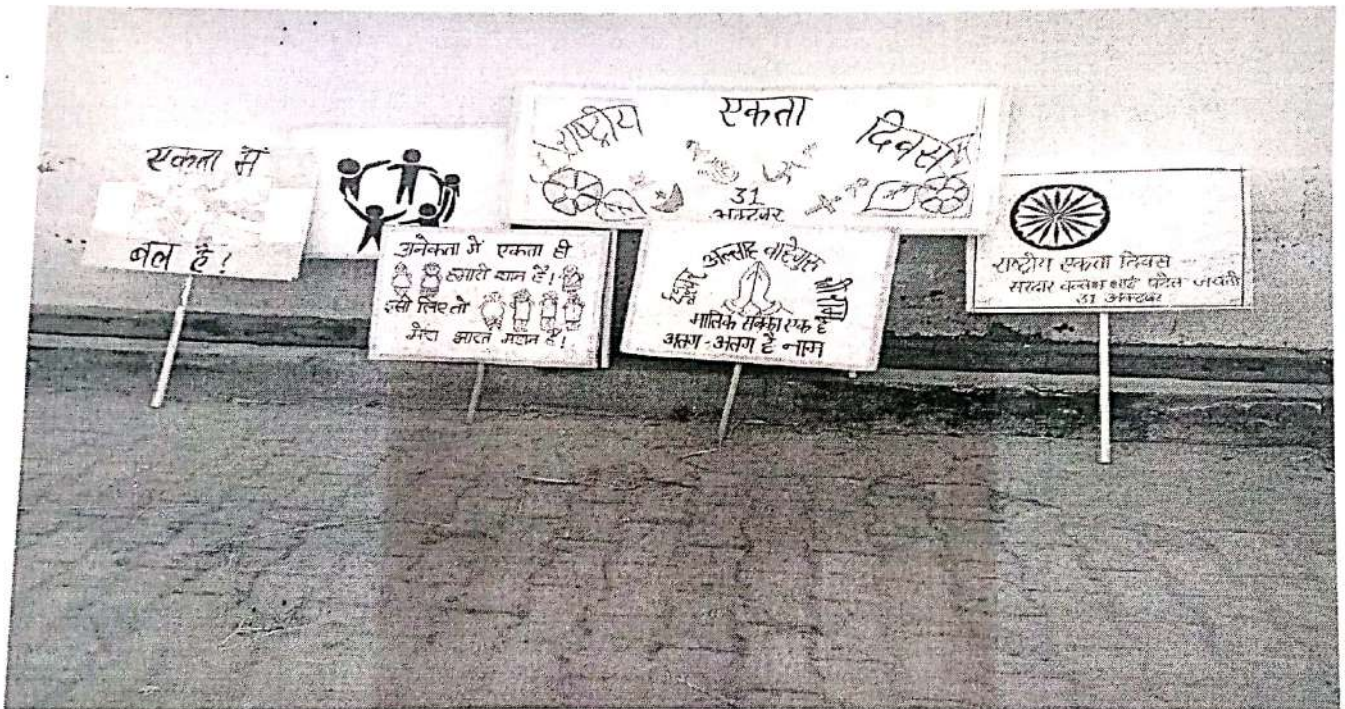 एकता में
बल है!
राष्ट्रीय एकता दिवस
31
अक्टूबर
अनेकता में एकता ही
हमारी शान है!
इसी लिए तो
मेरा भारत महान है!
ईश्वर अल्लाह वाहेगुरु श्री राम
मालिक सबका एक है
अलग-अलग है नाम
राष्ट्रीय एकता दिवस
सरदार वल्लभ भाई पटेल जयंती
31 अक्टूबर